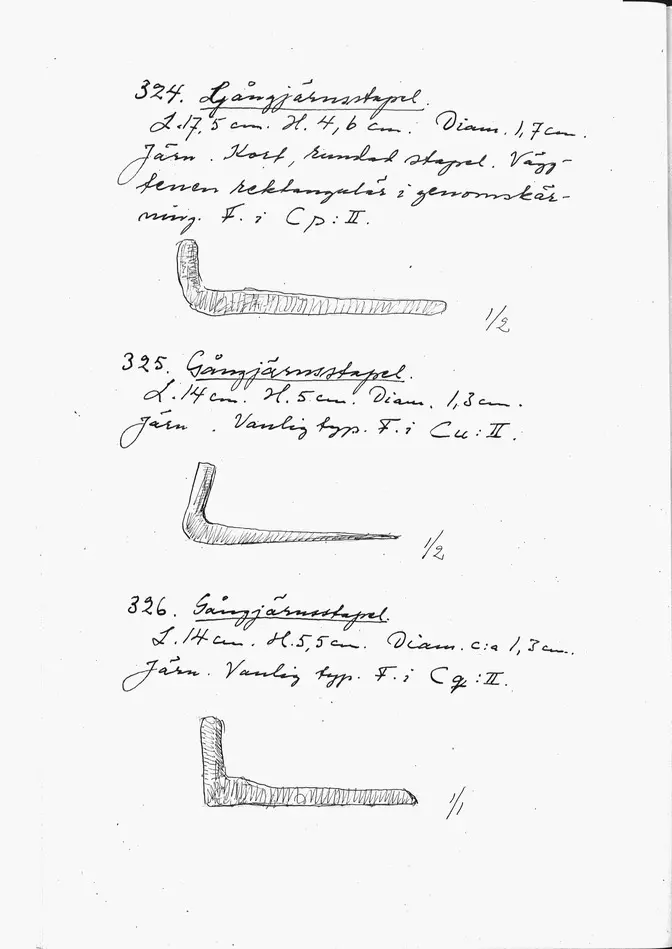 324. Gångjärnsstapel.
L. 17,5 cm. H. 4,6 cm. Diam. 1,7 cm.
Järn. Kort, rundad stapel. Vägg-
tenen rektangulär i genomskär-
ning. F. i Cp:II.
1/2
325. Gångjärnsstapel.
L. 14 cm. H. 5 cm. Diam. 1,3 cm.
Järn. Vanlig typ. F. i Cu:II.
1/2
326. Gångjärnsstapel.
L. 14 cm. H. 5,5 cm. Diam. c:a 1,3 cm.
Järn. Vanlig typ. F. i Cq:II.
1/1